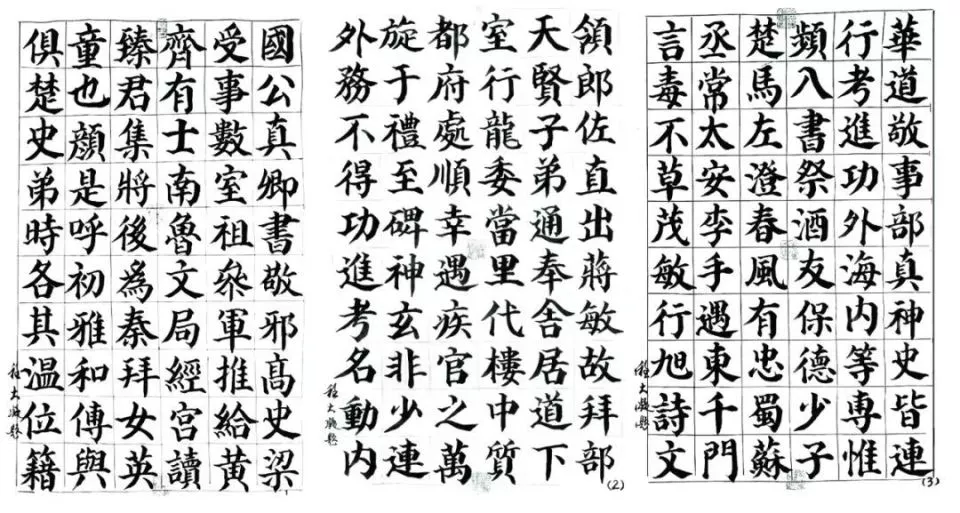 國公真卿書敬邪高史梁
受事數室祖叅軍推給黃
齊有士南魯文局經宮讀
臻君集將後為秦拜女英
童也顏是呼初雅和傅與
俱楚史弟時各其溫位籍
領郎佐直出蔣敏故拜部
天賢子弟通奉舍居道下
室行龍委當里代樓中質
都府處順幸遇疾官之萬
旋于禮至碑神玄非少連
外務不得功進考名動內
(2)
華道敬事部真神史皆連
行考進功外海內等專惟
頻八書祭酒友保德少子
楚馬左澄春風有忠蜀蘇
丞常太安李手遇東千門
言毒不草茂敏行旭詩文
(3)